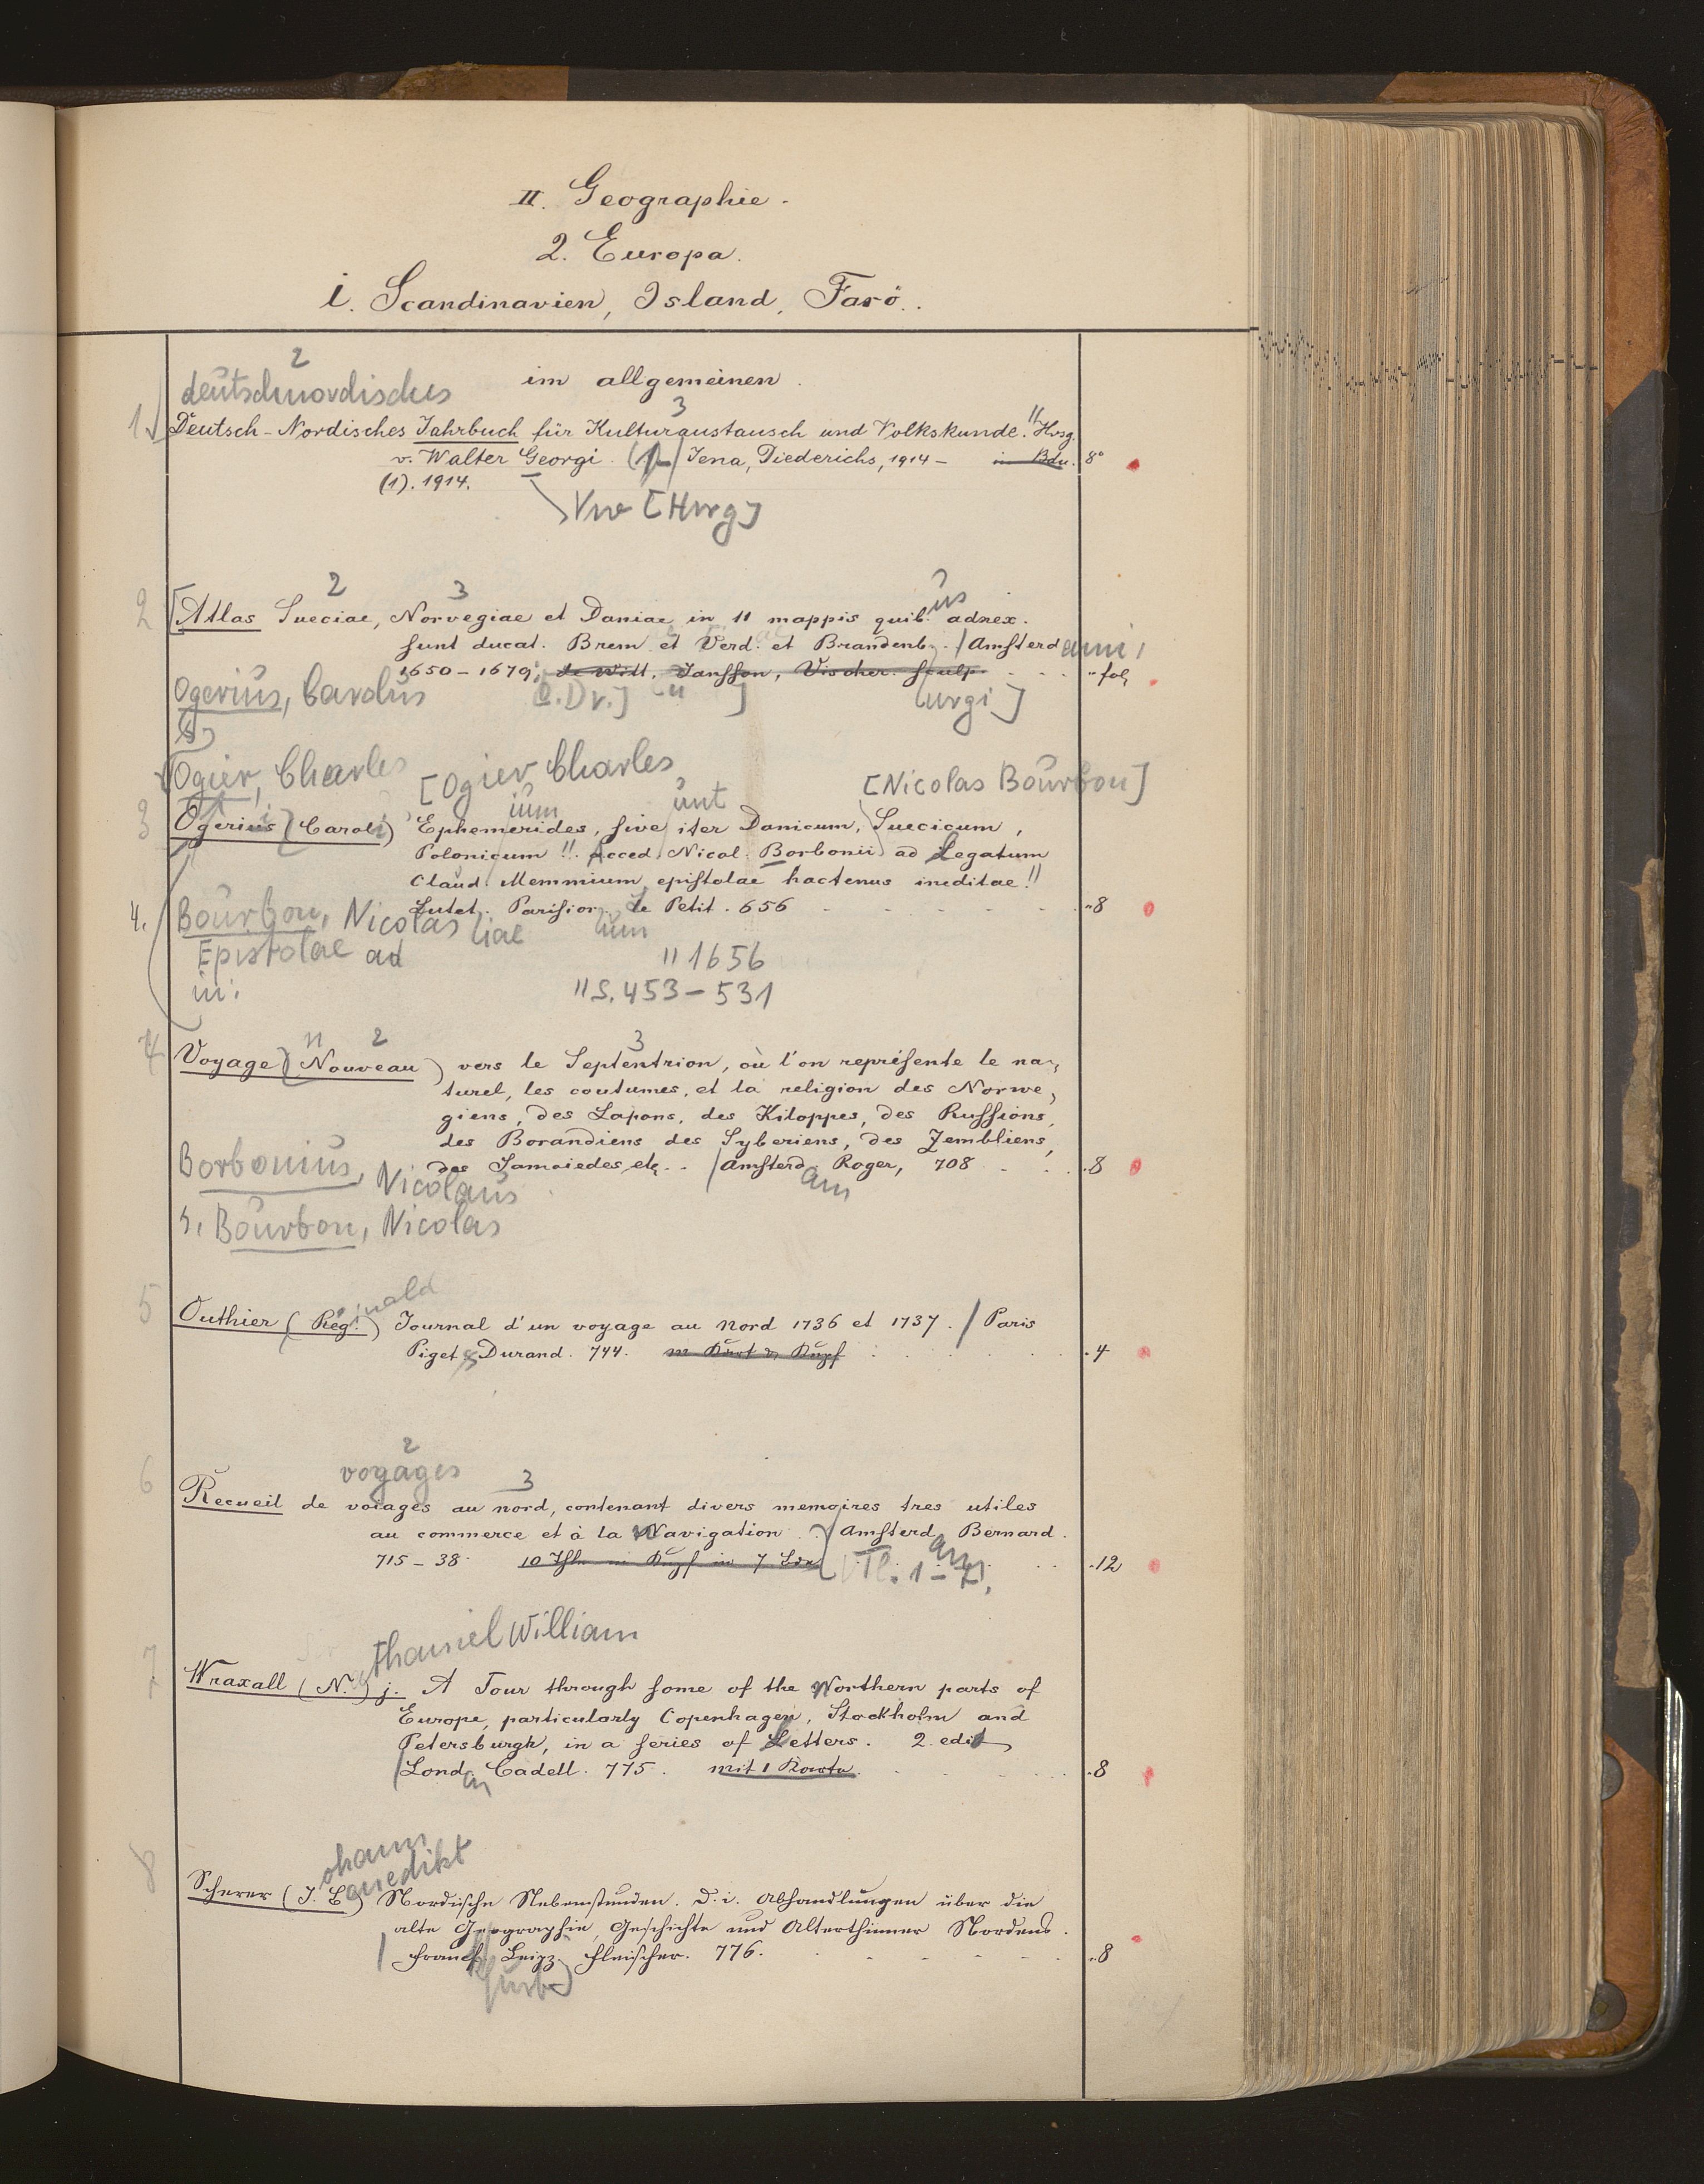 II. Geographie.
2. Europa.
i. Scandinavien, Island, Farö.
2
deutschnordisches
im allgemeinen.
3
1. Deutsch-Nordisches Jahrbuch für Kulturaustausch und Volkskunde. " Hrsg.
v. Walter Georgi. / Jena, Diederichs, 1914 – in Bdn. 8°
(1). 1914.
Vw [Hrsg]
2 3
us
2 [Atlas Sueciae, Norvegiae et Daniae in 11 mappis quib. adnex.
sunt ducat. Brem et Verd. et Brandenb. / Amsterdami,
1650–1679; de Witt, Jansson, Vischer sculp. fol.
Ogerius, Carolus [o.Dr.] u ] urgi]
s.
Ogier, Charles
[Ogier Charles [Nicolas Bourbon]
ium unt
3 Ogerius (Caroli) Ephemerides, sive iter Danicum, Suecicum,
Polonicum!!. Acced. Nicol. Borbonii ad Legatum
Claud. Memmium epistolae hactenus ineditae!!
Lutet. Parisior. Le Petit. 656 8
4. Bourbon, Nicolas tiae rum
Epistolae ad " 1656
in: " S. 453–531
n 2 3
4 Voyage (Nouveau) vers le Septentrion, où l'on représente le na-
turel, les coutumes, et la religion des Norwe-
giens, des Lapons, des Kiloppes, des Russions,
des Borandiens des Syberiens, des Zembliens,
des Samoiedes, etc.. / Amsterd. Roger, 708 8
am
Borbonius, Nicolaus
s. Bourbon, Nicolas
inald
5 Outhier (Reg.) Journal d'un voyage au Nord 1736 et 1737. / Paris
Piget & Durand. 744. m Kart & Kupf 4
2
voyages 3
6 Recueil de voiages au nord, contenant divers memoires tres utiles
au commerce et à la Navigation. / Amsterd. Bernard.
am
715–38. 10 Thle m Kupf in 7 Bdn Tl. 1– 12
thaniel William
7 Wraxall (N.) j. A Tour through some of the Northern parts of
Europe, particularly Copenhagen, Stockholm and
Petersburgh, in a series of Letters. 2. edit
/ Lond. Cadell. 775. mit 1 Karte. 8
on
ohann
enedikt
8 Scherer (J. B.) Nordische Nebenstunden. D. i. Abhandlungen über die
alte Geographie, Geschichte und Alterthümer Nordens.
/ Franckf. Leipz. Fleischer. 776. 8
furt